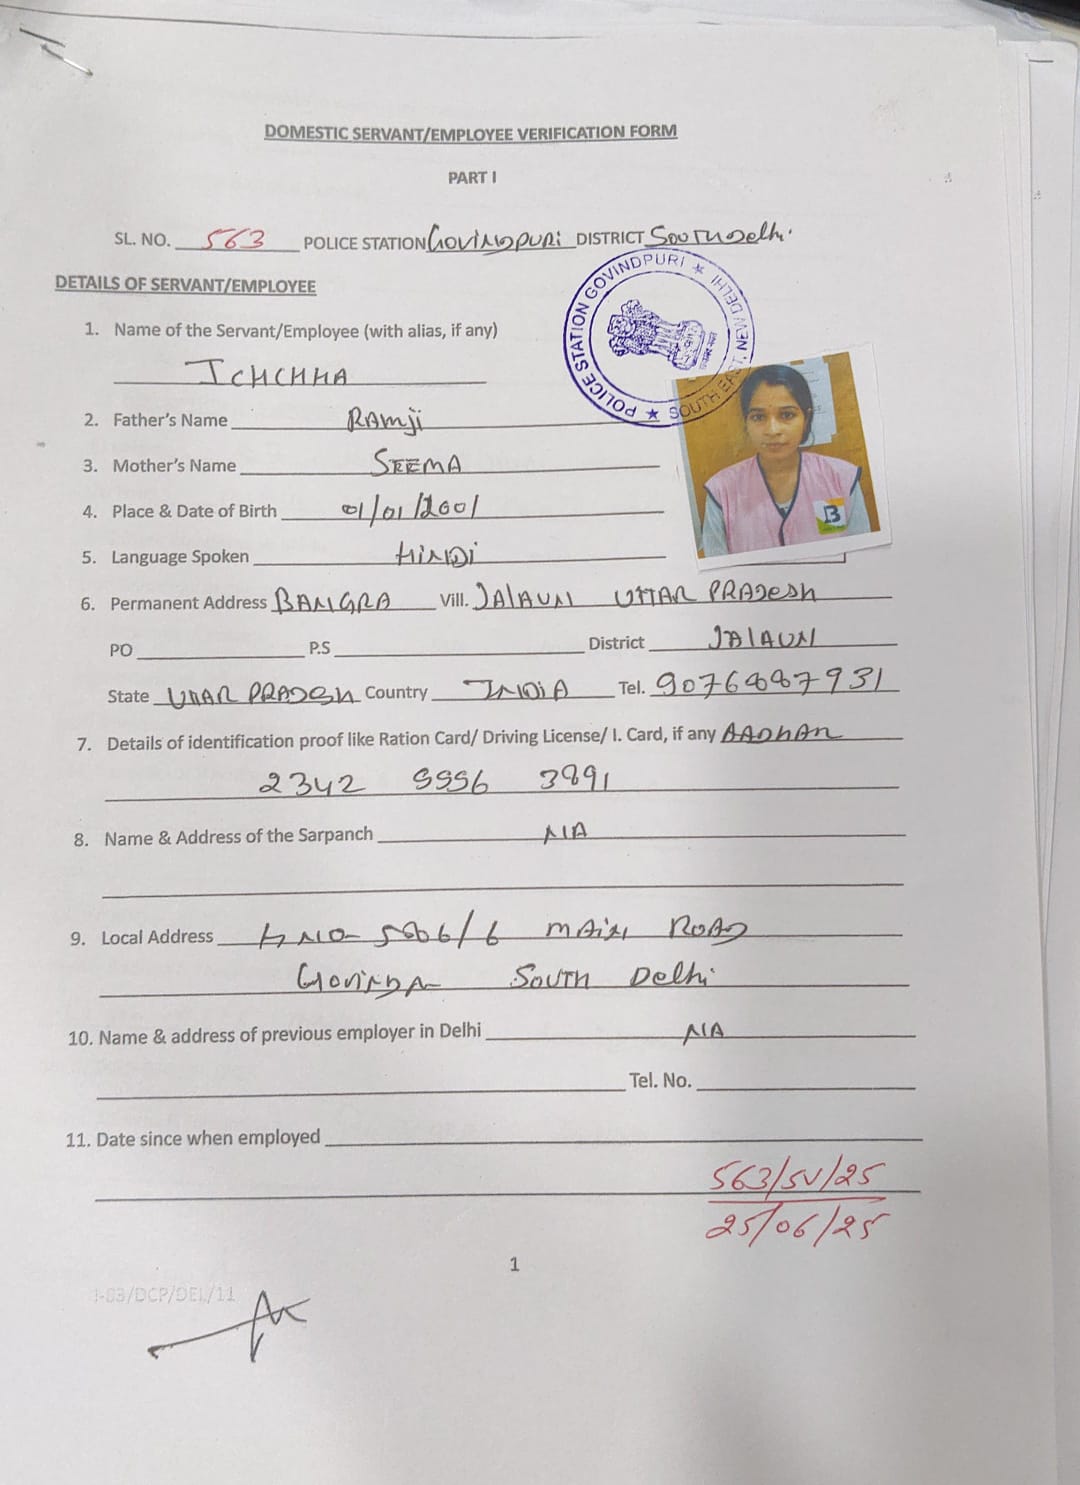 DOMESTIC SERVANT/EMPLOYEE VERIFICATION FORM
PART I
SL. NO. 563 POLICE STATION GOVINDPURI DISTRICT SOUTH Delhi
DETAILS OF SERVANT/EMPLOYEE
POLICE STATION GOVINDPURI ★ SOUTH EAST, NEW DELHI ★
1. Name of the Servant/Employee (with alias, if any)
ICHCHHA
2. Father's Name RAMji
3. Mother's Name SEEMA
4. Place & Date of Birth 01/01/2001
B
5. Language Spoken HiNDi
6. Permanent Address BANGRA Vill. JAlAUN UTTAR PRADesh
PO P.S District JAlAUN
State UTTAR PRADESH Country INDiA Tel.
7. Details of identification proof like Ration Card/ Driving License/ I. Card, if any AADhAR
2342 5556 3891
8. Name & Address of the Sarpanch N/A
9. Local Address MAiN ROAD
SOUTH Delhi
10. Name & address of previous employer in Delhi N/A
Tel. No.
11. Date since when employed
563/SV/25
25/06/25
1